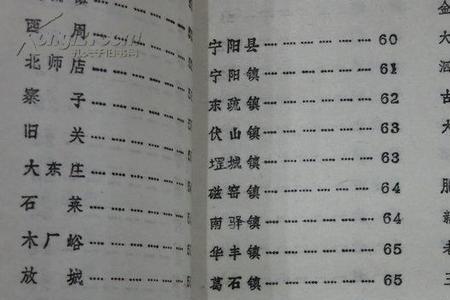 西周
北师店
寨子
旧关
大东庄
石莱
木厂峪
放城
宁阳县 60
宁阳镇 61
东疏镇 62
伏山镇 63
堽城镇 63
磁窑镇 64
南驿镇 64
华丰镇 65
葛石镇 65